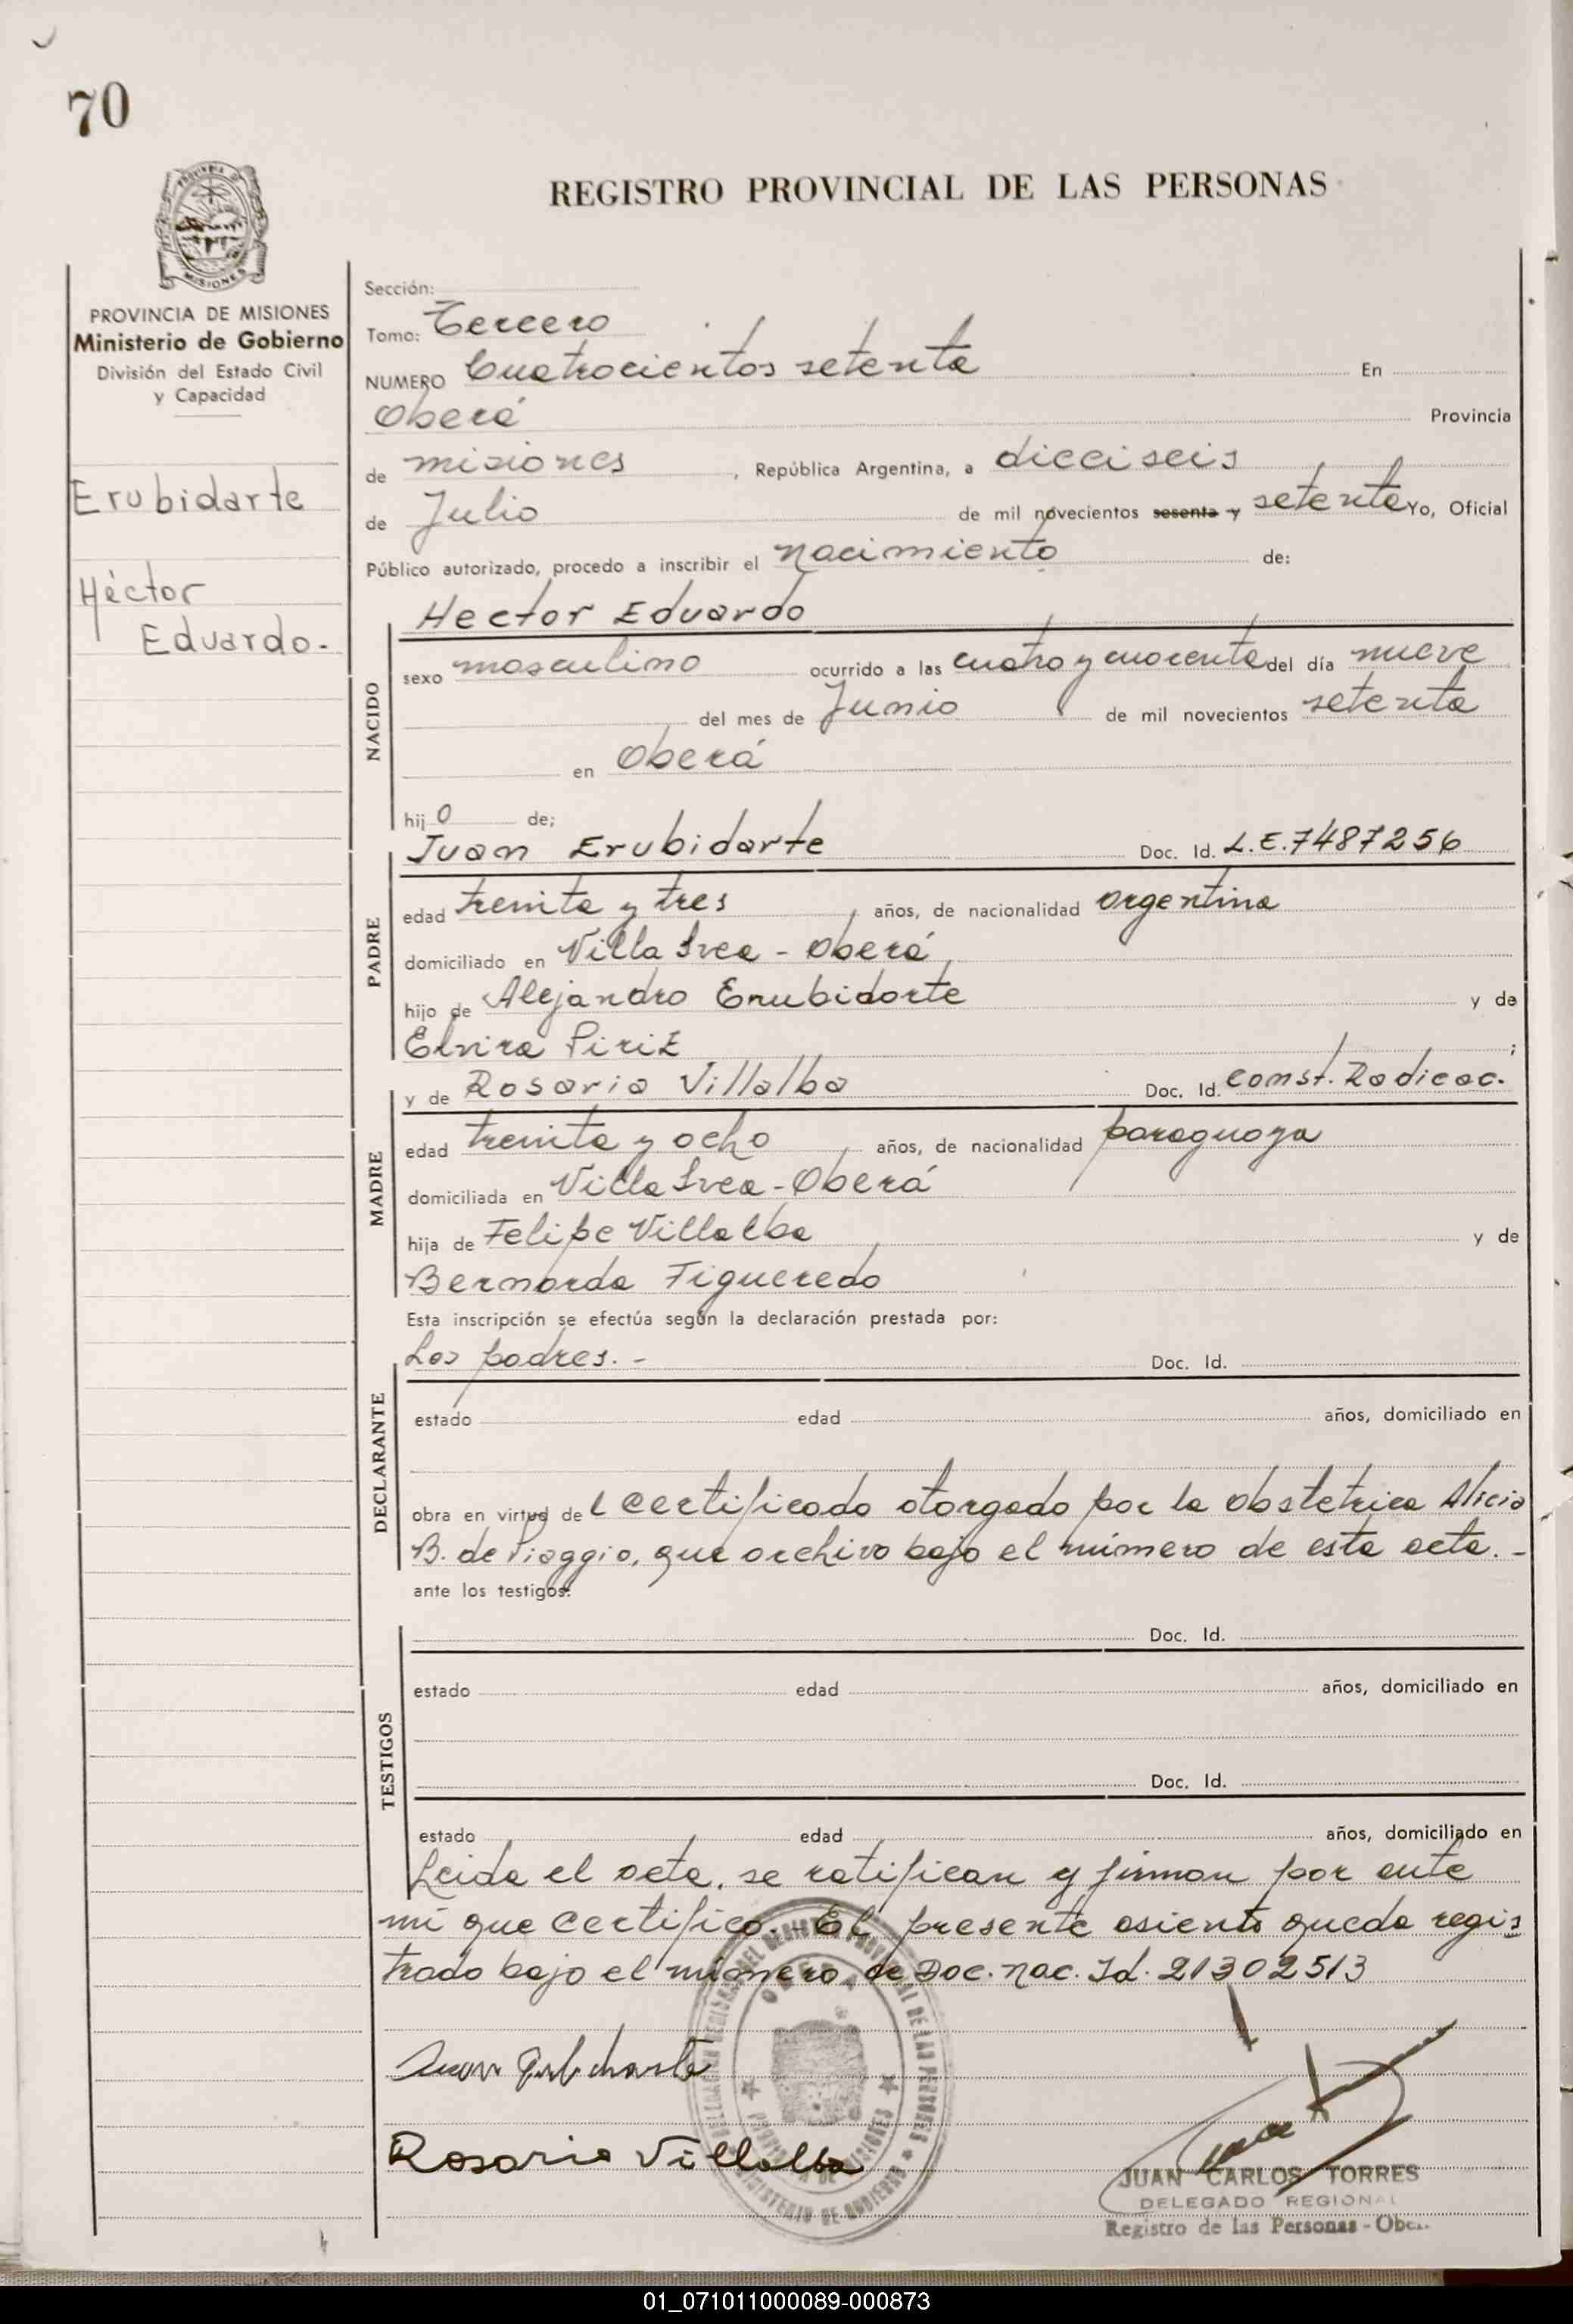 70
PROVINCIA DE MISIONES
Ministerio de Gobierno
División del Estado Civil
y Capacidad
Erubidarte
Héctor
Eduardo.-
REGISTRO PROVINCIAL DE LAS PERSONAS
Sección:
Tomo: Tercero
NUMERO Cuatrocientos setenta En
Oberá Provincia
de misiones, República Argentina, a dieciseis
de Julio de mil novecientos sesenta y setenta Yo, Oficial
Público autorizado, procedo a inscribir el nacimiento de:
Hector Eduardo
NACIDO
sexo masculino ocurrido a las cuatro y cuarenta del día nueve
del mes de Junio de mil novecientos setenta
en Oberá
hijo de;
Juan Erubidarte Doc. Id. L.E. 7487256
PADRE
edad treinta y tres, años, de nacionalidad argentina
domiciliado en Villa Svea - Oberá,
hijo de Alejandro Erubidarte y de
Elvira Piriz;
y de Rosario Villalba Doc. Id. Const. Radicac.
MADRE
edad treinta y ocho, años, de nacionalidad paraguaya
domiciliada en Villa Svea - Oberá
hija de Felipe Villalba, y de
Bernarda Figueredo
Esta inscripción se efectúa según la declaración prestada por:
Los padres.- Doc. Id.
DECLARANTE
estado edad años, domiciliado en
obra en virtud del certificado otorgado por la obstetrica Alicia
B. de Piaggio, que archivo bajo el número de esta acta.-
ante los testigos:
TESTIGOS
Doc. Id.
estado edad años, domiciliado en
Doc. Id.
estado edad años, domiciliado en
Leida el acta, se ratifican y firman por ante
mi que certifico.- El presente asiento queda regis
trado bajo el número de Doc. nac. Id. 21302513
OBERA
PROVINCIA DE MISIONES
MINISTERIO DE GOBIERNO
Rosario Villalba
JUAN CARLOS TORRES
DELEGADO REGIONAL
Registro de las Personas - Obe..
01_071011000089-000873